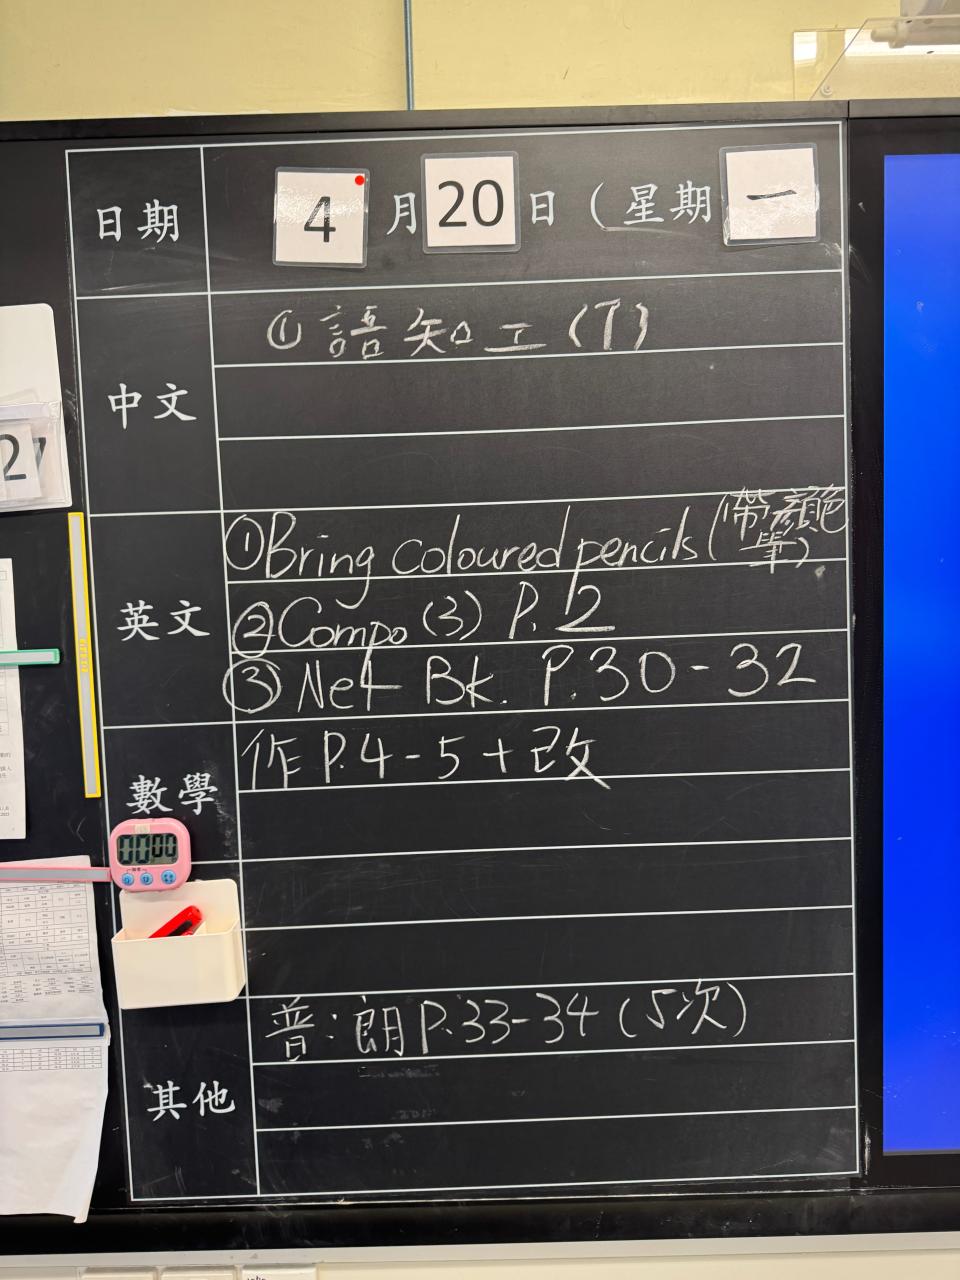 日期 4 月 20 日 (星期 一
中文
① 語知工 (T)
英文
① Bring coloured pencils (帶顏色筆)
② Compo (3) P. 2
③ Net Bk. P. 30 - 32
數學
作 P.4 - 5 + 改
00 00
其他
普: 朗 P.33-34 (5次)
27